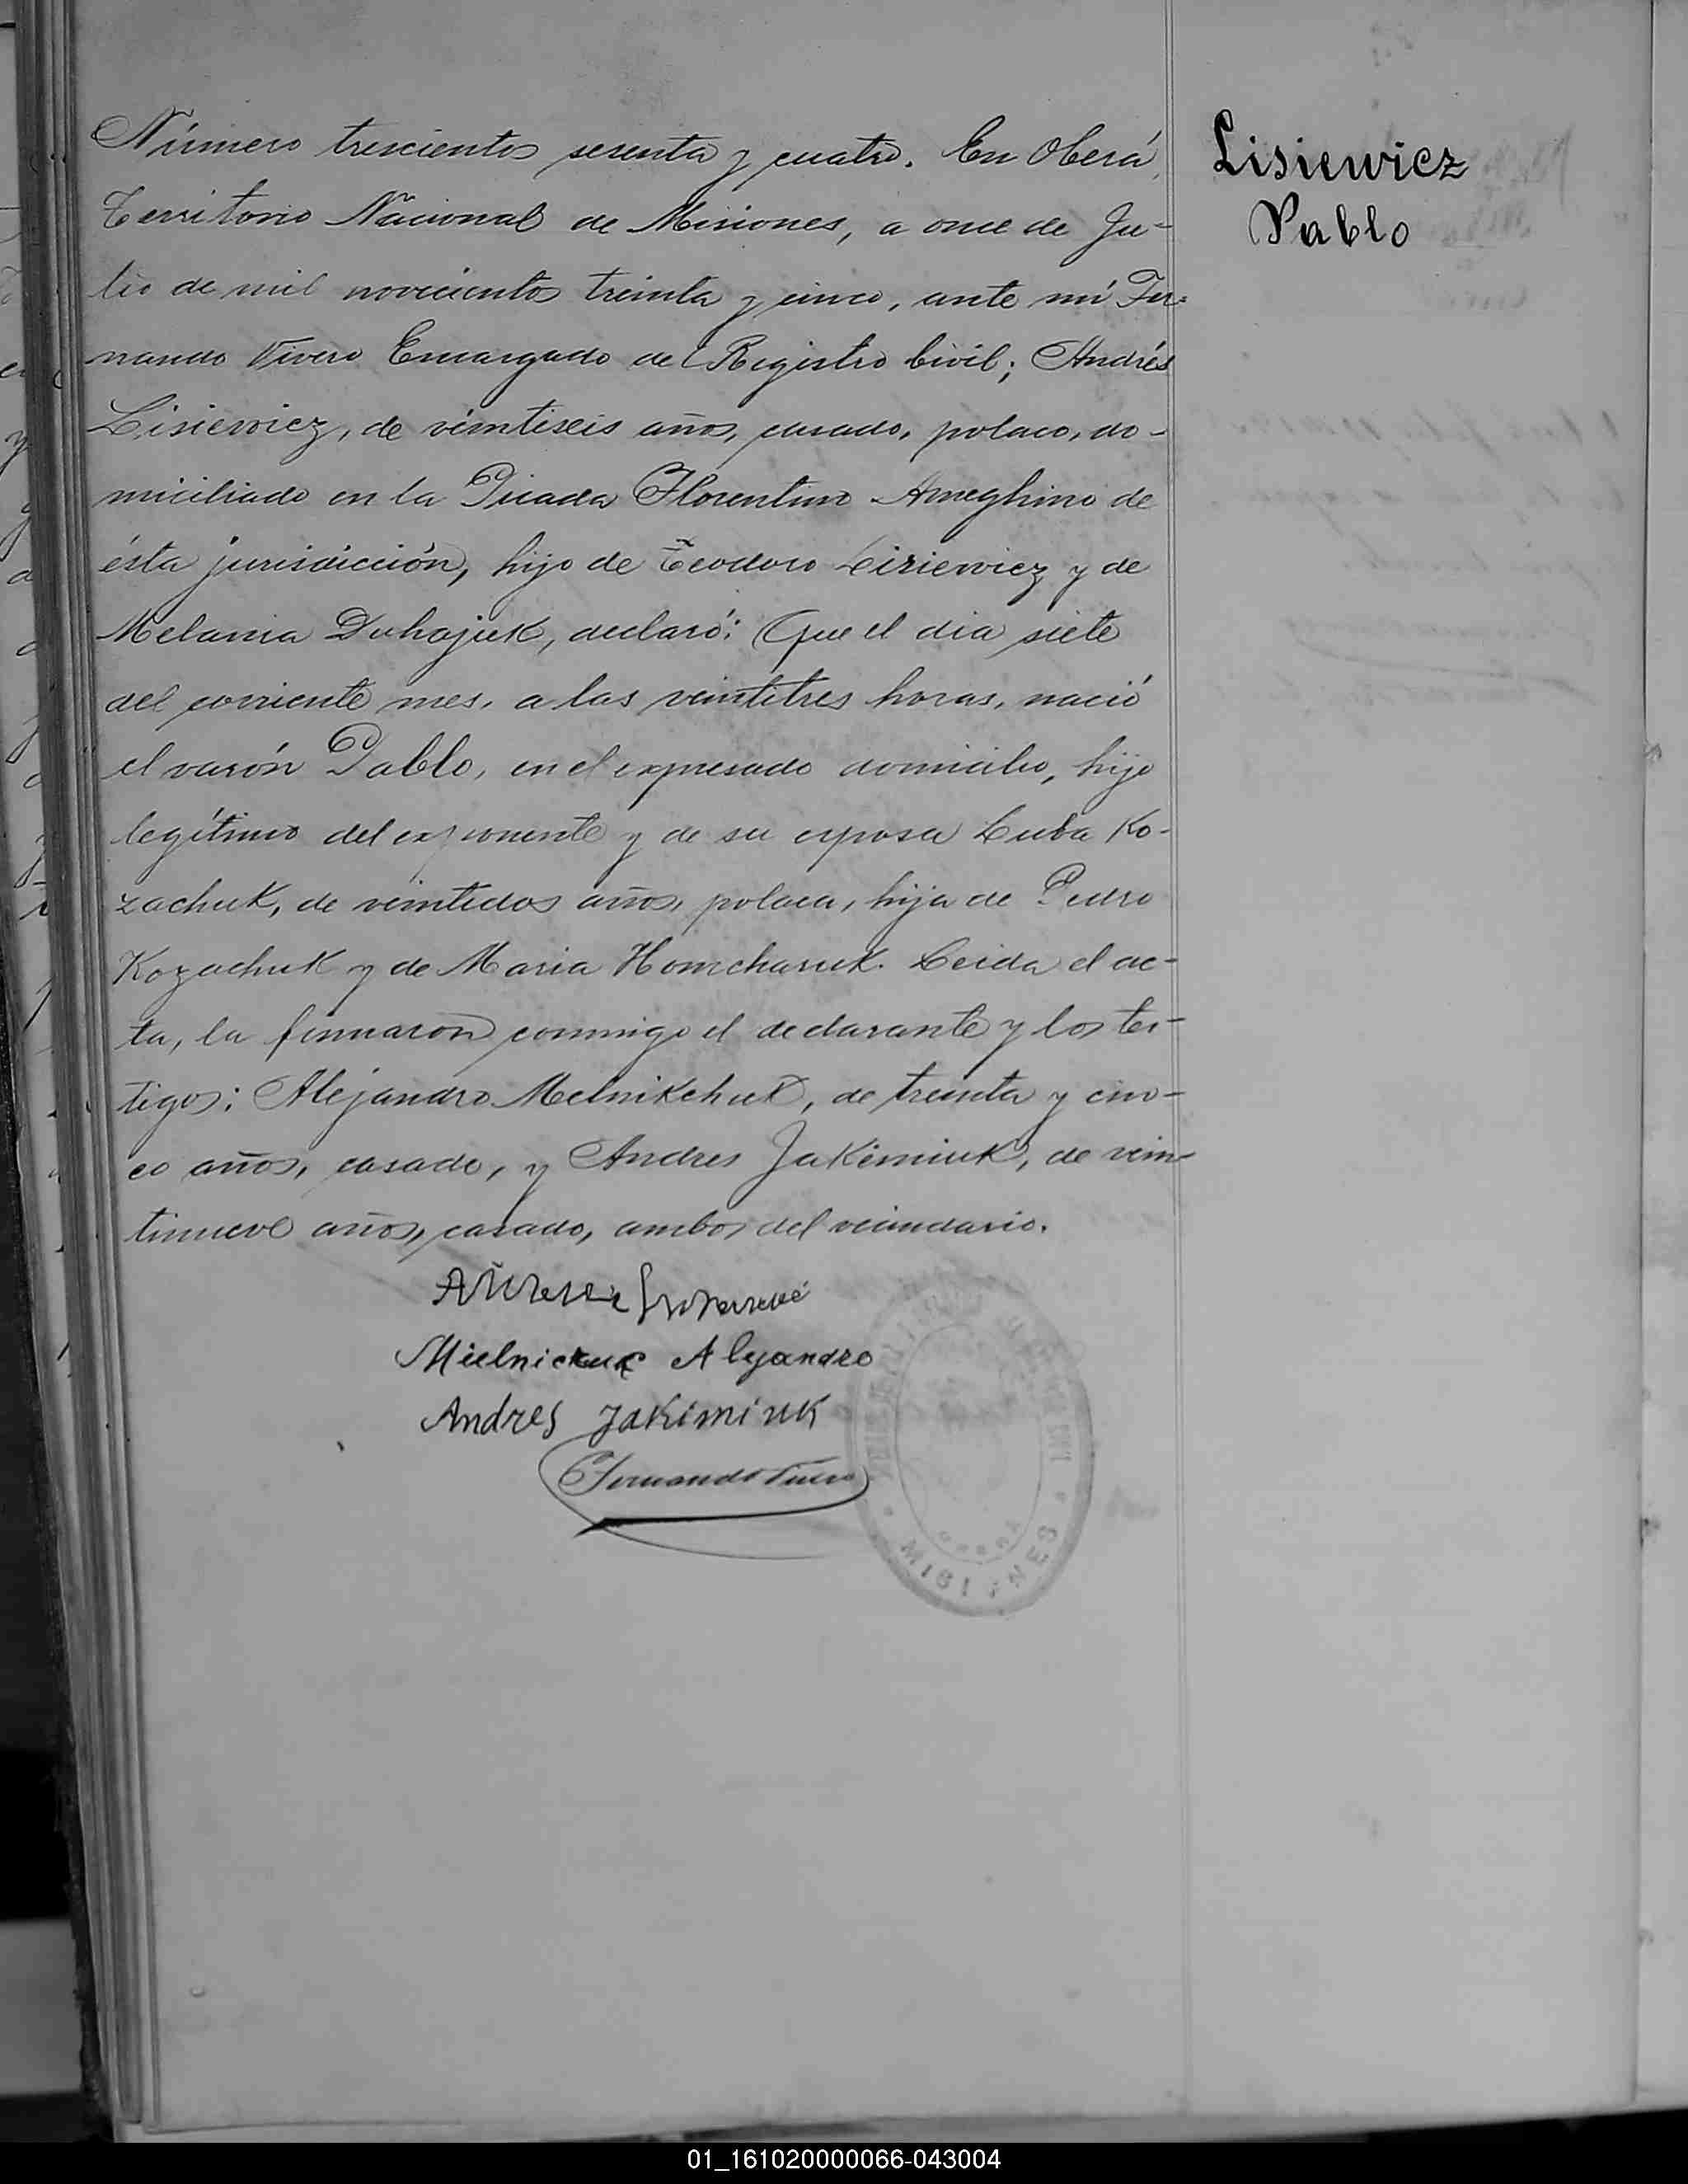 Número trescientos sesenta y cuatro. En Oberá,
Territorio Nacional de Misiones, a once de Ju-
lio de mil novecientos treinta y cinco, ante mí Fer-
nando Vivero Encargado del Registro Civil; Andrés
Lisiewiez, de veintiseis años, casado, polaco, do-
miciliado en la Picada Florentino Ameghino de
ésta jurisdicción, hijo de Teodoro Lisiewiez y de
Melania Duhajuk, declaró: Que el dia siete
del corriente mes, a las veintitres horas, nació
el varón Pablo, en el expresado domicilio, hijo
legítimo del exponente y de su esposa Luba Ko-
zachuk, de veintidos años, polaca, hija de Pedro
Kozachuk y de Maria Homcharuk. Leida el ac-
ta, la firmaron conmigo el declarante y los tes-
tigos: Alejandro Melnikchuk, de treinta y cin-
co años, casado, y Andres Jakimiuk, de vein-
tinueve años, casado, ambos del vecindario.
Mielnicruk Alejandro
Andres Jakimiuk
Fernando Vivero
MISIONES
Lisiewicz
Pablo
01_161020000066-043004